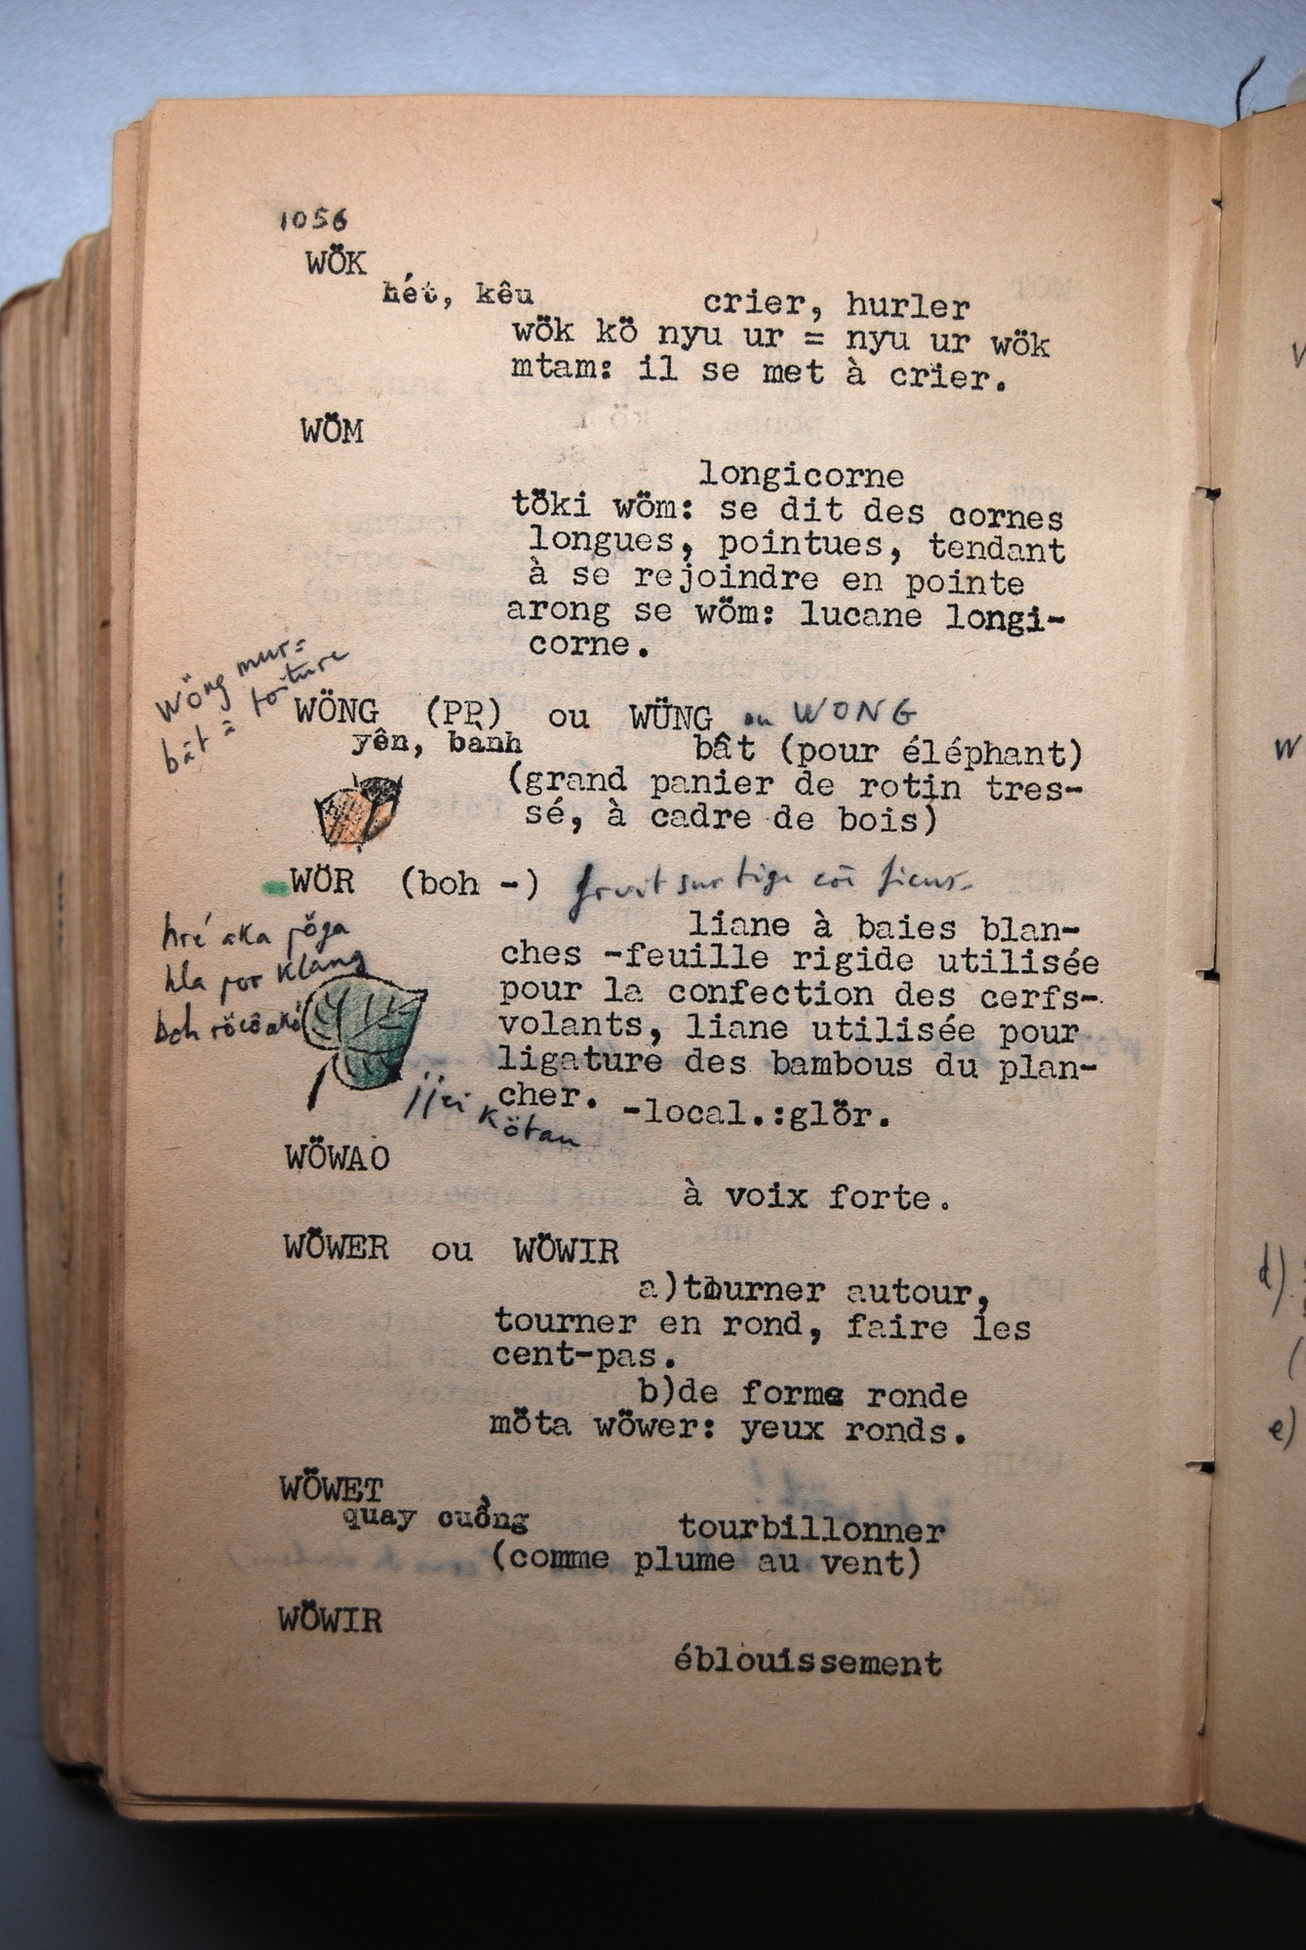 1056
WÖK
hét, kêu crier, hurler
wök kö nyu ur = nyu ur wök
mtam: il se met à crier.
WÖM
longicorne
töki wöm: se dit des cornes
longues, pointues, tendant
à se rejoindre en pointe
arong se wöm: lucane longi-
corne.
Wöng mur=
bât = toiture
WÖNG (PP) ou WÜNG ou WONG
yên, bành bât (pour éléphant)
(grand panier de rotin tres-
sé, à cadre de bois)
WÖR (boh -) fruit sur tige ficus
liane à baies blan-
ches -feuille rigide utilisée
pour la confection des cerfs-
volants, liane utilisée pour
ligature des bambous du plan-
cher. -local.:glör.
hré aka
hla por klang
boh
kötan
WÖWAO
à voix forte.
WÖWER ou WÖWIR
a)tourner autour,
tourner en rond, faire les
cent-pas.
b)de forme ronde
möta wöwer: yeux ronds.
WÖWET
quay cuồng tourbillonner
(comme plume au vent)
WÖWIR
éblouissement
W
d)
(
e)